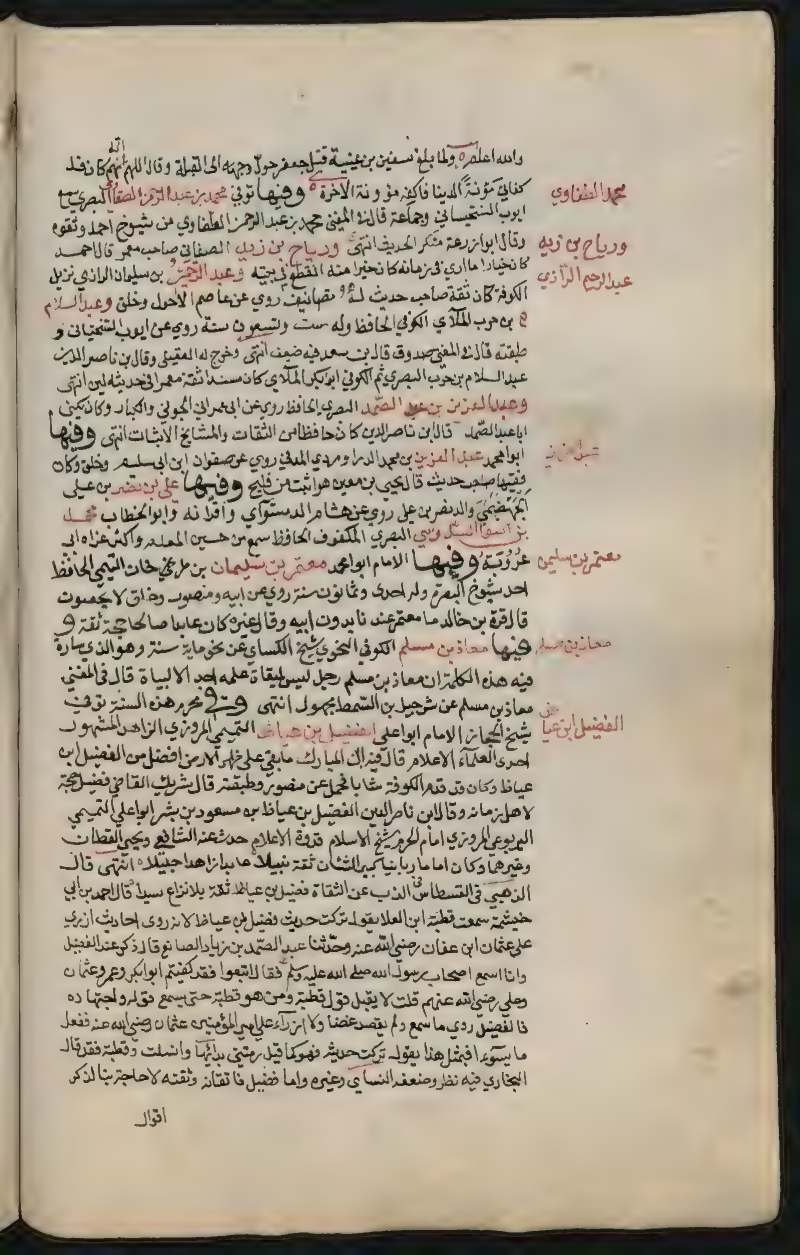 والله اعلم ولما بلغ سفين بن عيينة قتل جعفر حول وجهه الى القبلة وقال اللهم انه كان قد
كفاني مؤنة الدنيا فاكفه مؤونة الآخرة وفيها توفي محمد بن عبد الرحمن الطفاوي البصري سمع
محمد الطفاوي
ايوب السختياني وجماعة قال في المغني محمد بن عبد الرحمن الطفاوي من شيوخ احمد وثقوه
وقال ابو زرعة منكر الحديث انتهى ورباح بن زيد الصنعاني صاحب معمر قال احمد
ورباح بن زيد
كان خيارا ما ارى في زمانه كان خيرا منه انقطع في بيته وعبد الرحيم بن سليمان الرازي نزيل
عبد الرحيم الرازي
الكوفة كان ثقة صاحب حديث له تصانيف روى عن عاصم الاحول وخلق وعبد السلام
بن حرب الملاي الكوفي الحافظ وله ست وتسعون سنة روى عن ايوب السختياني و
طبقته قال في المغني صدوق قال بن سعد فيه ضعف انتهى وخرج له العقيلي وقال بن ناصر الدين
عبد السلام بن حرب البصري ثم الكوفي ابو بكر الملاي كان مسندا ثقة معمرا في حديثه لين انتهى
وعبد العزيز بن عبد الصمد البصري الحافظ روى عن ابي عمران الجوني والكبار وكان يكنى
ابا عبد الصمد قال ابن ناصر الدين كان حافظا من الثقات والمشايخ الاثبات انتهى وفيها
ابو محمد عبد العزيز بن محمد الدراوردي المدني روى عن صفوان ابن ابي سليم وخلق وكان
عبد العزيز
فقيها صاحب حديث قال يحيى بن معين هو اثبت من فليح وفيها علي بن نصر بن علي
الجهضمي والد نصر بن علي روى عن هشام الدستواي واقرانه وابو الخطاب محمد
بن السدوسي البصري المكفوف الحافظ سمع من حسين المعلم واكثر عن ابن ابي
عروبة وفيها الامام ابو محمد معتمر بن سليمان بن طرخان التيمي الحافظ
معتمر بن سليمن
احد شيوخ البصرة وله احدى وثمانون سنة روى عن ابيه ومنصور وخلق لا يحصون
قال قرة بن خالد ما معتمر عندنا بدون ابيه وقال غيره كان عابدا صالحا حجة ثقة و
فيها معاذ بن مسلم الكوفي النحوي شيخ الكساي عن نحو ماية سنة وهو الذي سارت
معاذ بن مسلم
فيه هذه الكلمة ان معاذ بن مسلم رجل ليس لميقاة علمه احد الابياة قال في المغني
معاذ بن مسلم عن شرحبيل بن السمط مجهول انتهى وفي محرم هذه السنة توفي
شيخ الحجاز الامام ابو علي الفضيل بن عياض التميمي المروزي الزاهد المشهور
الفضيل ابن عياض
احد العلماء الاعلام قال فيه ابن المبارك ما بقي على ظهر الارض افضل من الفضيل ابن
عياظ وكان قد قدم الكوفة شابا فحمل عن منصور وطبقته قال شريك القاضي فضيل حجة
لاهل زمانه وقال ابن ناصر الدين الفضيل بن عياظ بن مسعود بن بشر ابو علي التميمي
اليربوعي المروزي امام الحرم شيخ الاسلام قدوة الاعلام حدث عنه الشافعي ويحيى القطان
وغيرهما وكان اماما ربانيا كبير الشان ثقة نبيلا عابدا زاهدا جليلا انتهى قال
الذهبي في القسطاس في الذب عن الثقاة فضيل بن عياظ ثقة بلا نزاع سيد قال احمد بن ابي
خيثمة سمعت قطبة ابن العلا يقول تركت حديث فضيل بن عياظ لانه روى احاديث ازرى
على عثمان ابن عفان رضي الله عنه وحدثنا عبد الصمد بن زياد الصانع قال ذكر عند الفضيل
وانا اسمع اصحاب رسول الله صلى الله عليه وسلم فقال اتبعوا فقد كفيتم ابو بكر وعمر وعثمان
وعلي رضي الله عنهم قلت لا يقبل قول قطبة ومن هو قطبة حتى يسمع قوله واجتهاده
فالفضيل روى ما سمع ولم يقصد غضا ولا ازراء على امير المؤمنين عثمان رضي الله عنه ففعل
ما يسوغ افبمثل هذا يقول تركت حديثه فهو كما قيل رمتني بدائها وانسلت وقطبة فقد قال
البخاري فيه نظر وضعفه النساي وغيره واما فضيل فاتقانه وثقته لا حاجة بنا لذكر
اقوال